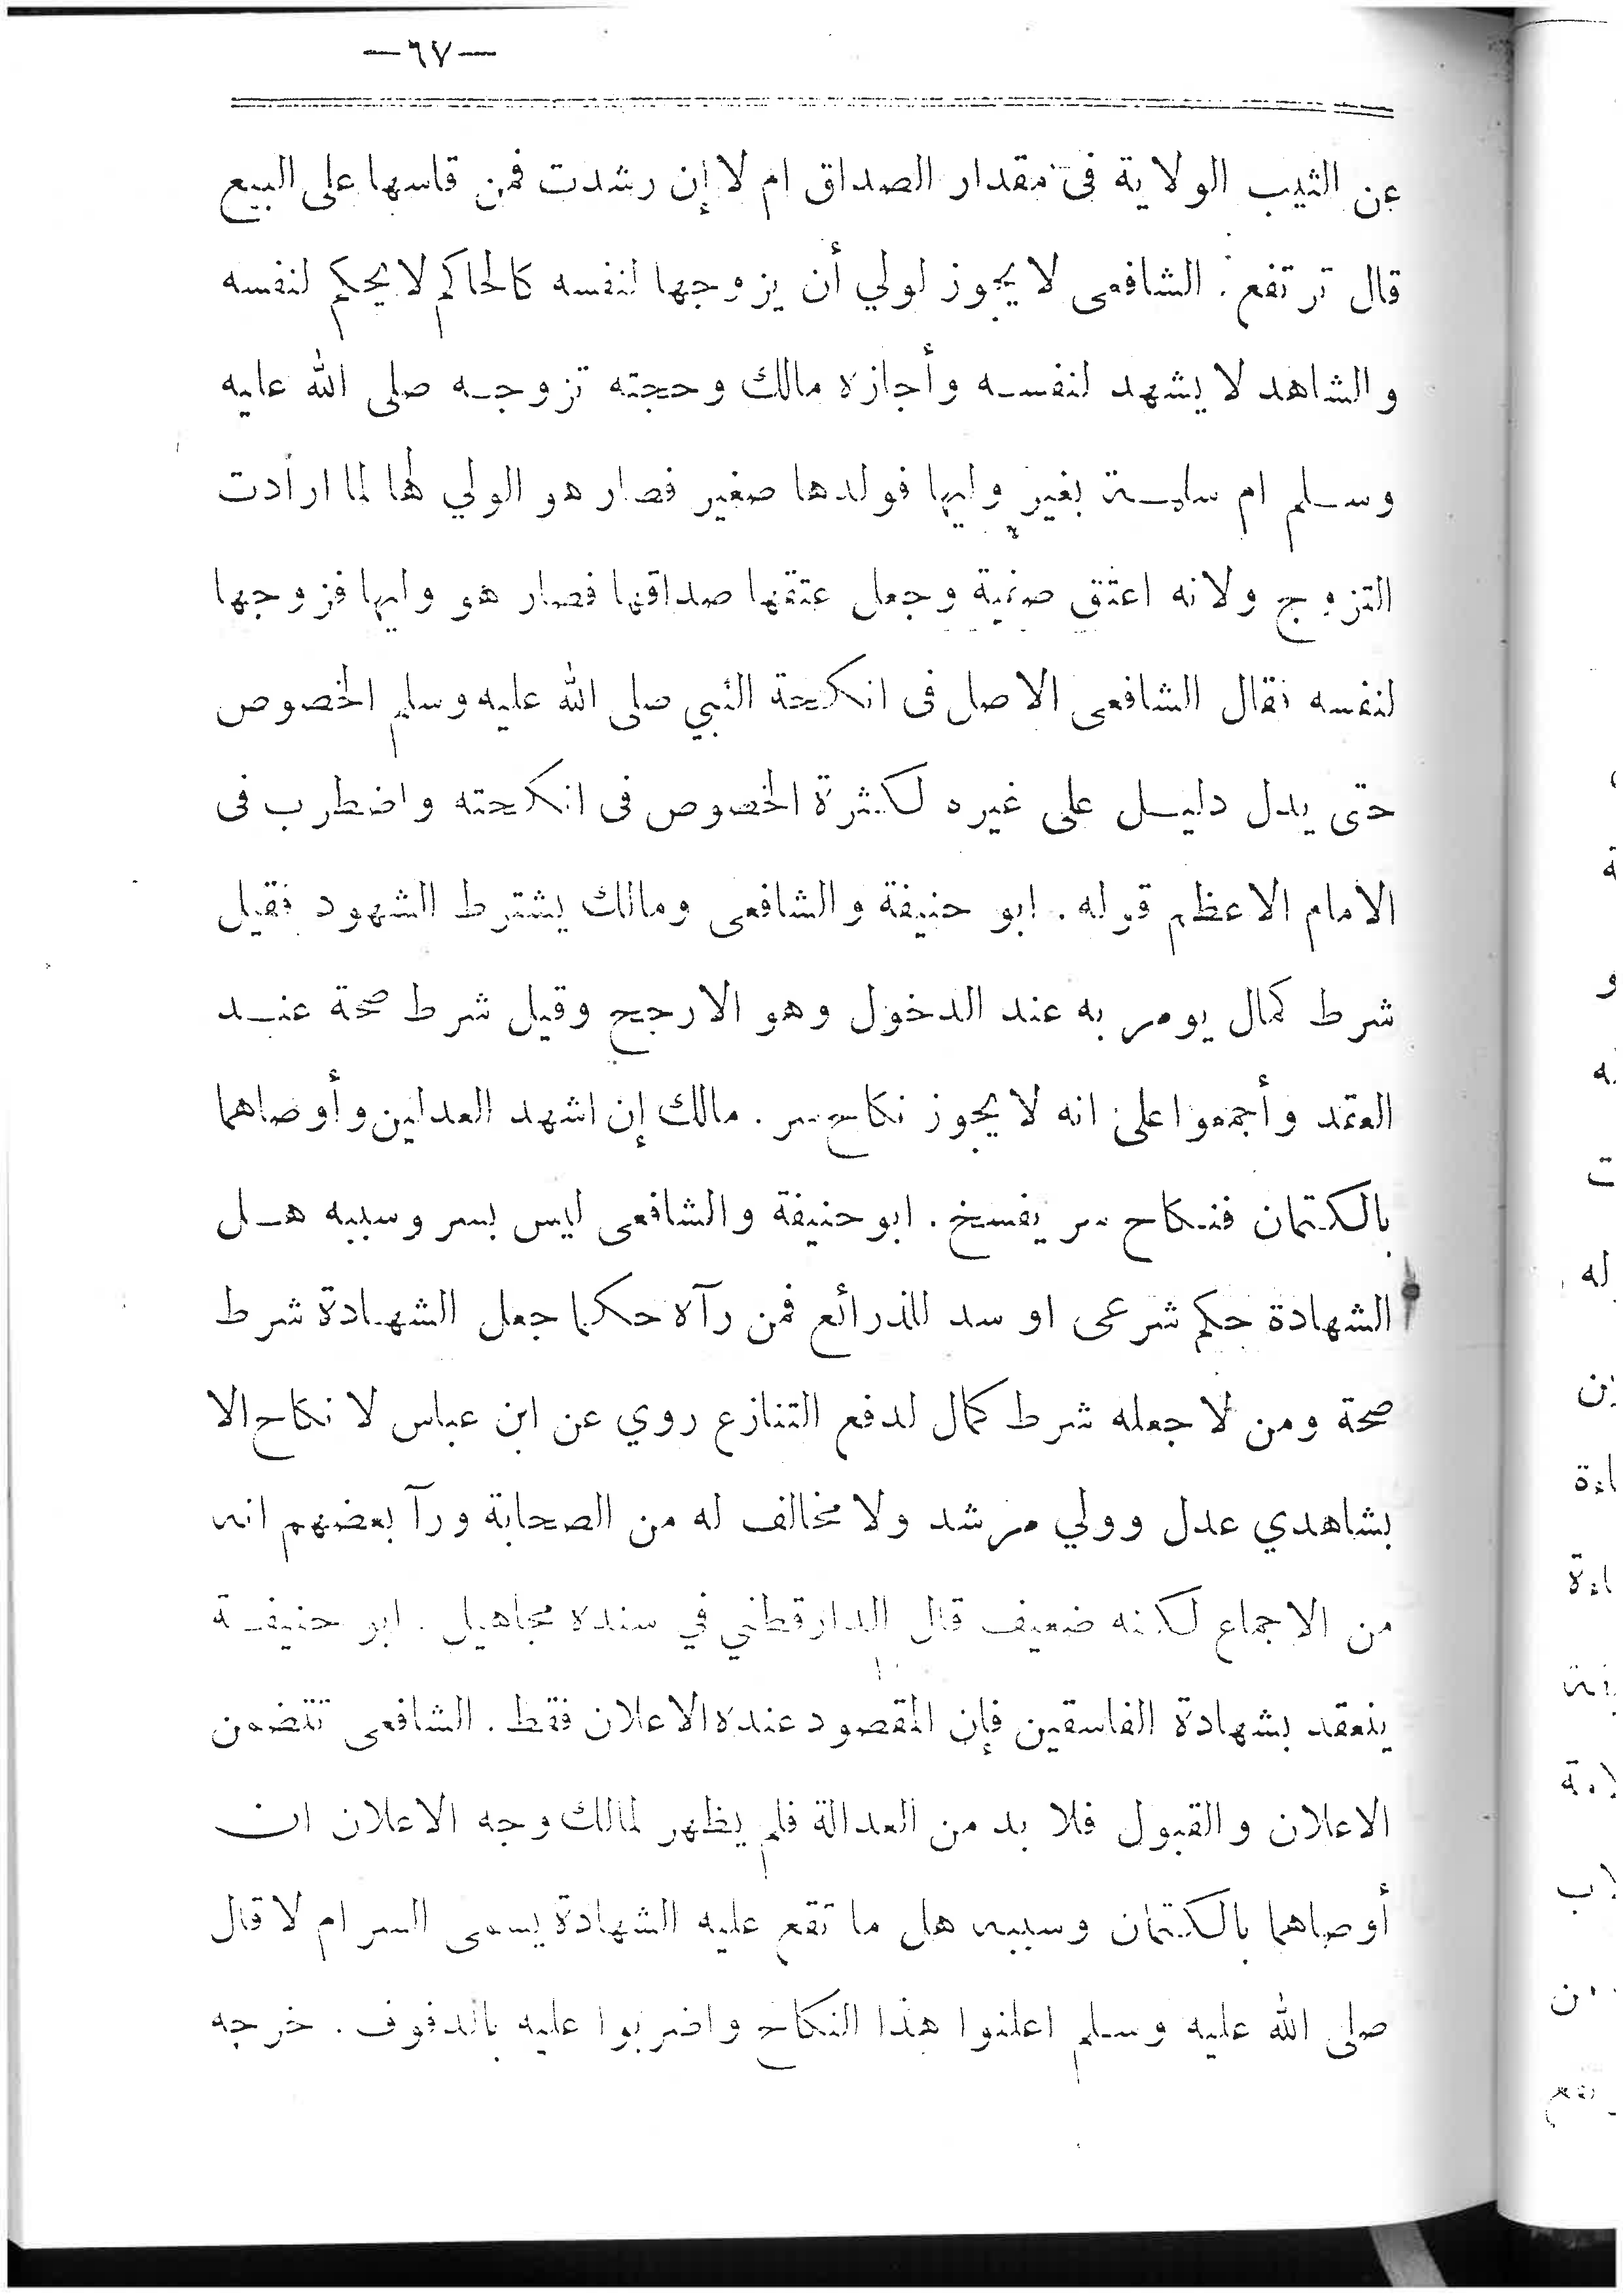 —٦٧—
عن الثيب الولاية فى مقدار الصداق ام لا إن رشدت فمن قاسها على البيع
قال ترتفع . الشافعى لا يجوز لولي أن يزوجها لنفسه كالحاكم لا يحكم لنفسه
والشاهد لا يشهد لنفسه وأجازه مالك وحجته تزوجه صلى الله عليه
وسلم ام سلمة بغير وليها فولدها صغير فصار هو الولي لها لما ارادت
التزوج ولانه اعتق صفية وجعل عتقها صداقها فصار هو وليها فزوجها
لنفسه فقال الشافعى الاصل فى انكحة النبي صلى الله عليه وسلم الخصوص
حتى يدل دليل على غيره لكثرة الخصوص فى انكحته واضطرب فى
الامام الاعظم قوله . ابو حنيفة والشافعى ومالك يشترط الشهود فقيل
شرط كمال يومر به عند الدخول وهو الارجح وقيل شرط صحة عند
العقد وأجمعوا على انه لا يجوز نكاح سر . مالك إن اشهد العدلين وأوصاهما
بالكتمان فنكاح سر يفسخ . ابو حنيفة والشافعى ليس بسر وسببه هل
الشهادة حكم شرعى او سد للذرائع فمن رآه حكما جعل الشهادة شرط
صحة ومن لا جعله شرط كمال لدفع التنازع روي عن ابن عباس لا نكاح الا
بشاهدي عدل وولي مرشد ولا مخالف له من الصحابة ورآ بعضهم انه
من الاجماع لكنه ضعيف قال الدارقطني في سنده مجاهيل . ابو حنيفة
ينعقد بشهادة الفاسقين فإن المقصود عنده الاعلان فقط . الشافعى تتضمن
الاعلان والقبول فلا بد من العدالة فلم يظهر لمالك وجه الاعلان ان
أوصاهما بالكتمان وسببه هل ما تقع عليه الشهادة يسمى السر ام لا قال
صلى الله عليه وسلم اعلنوا هذا النكاح واضربوا عليه بالدفوف . خرجه